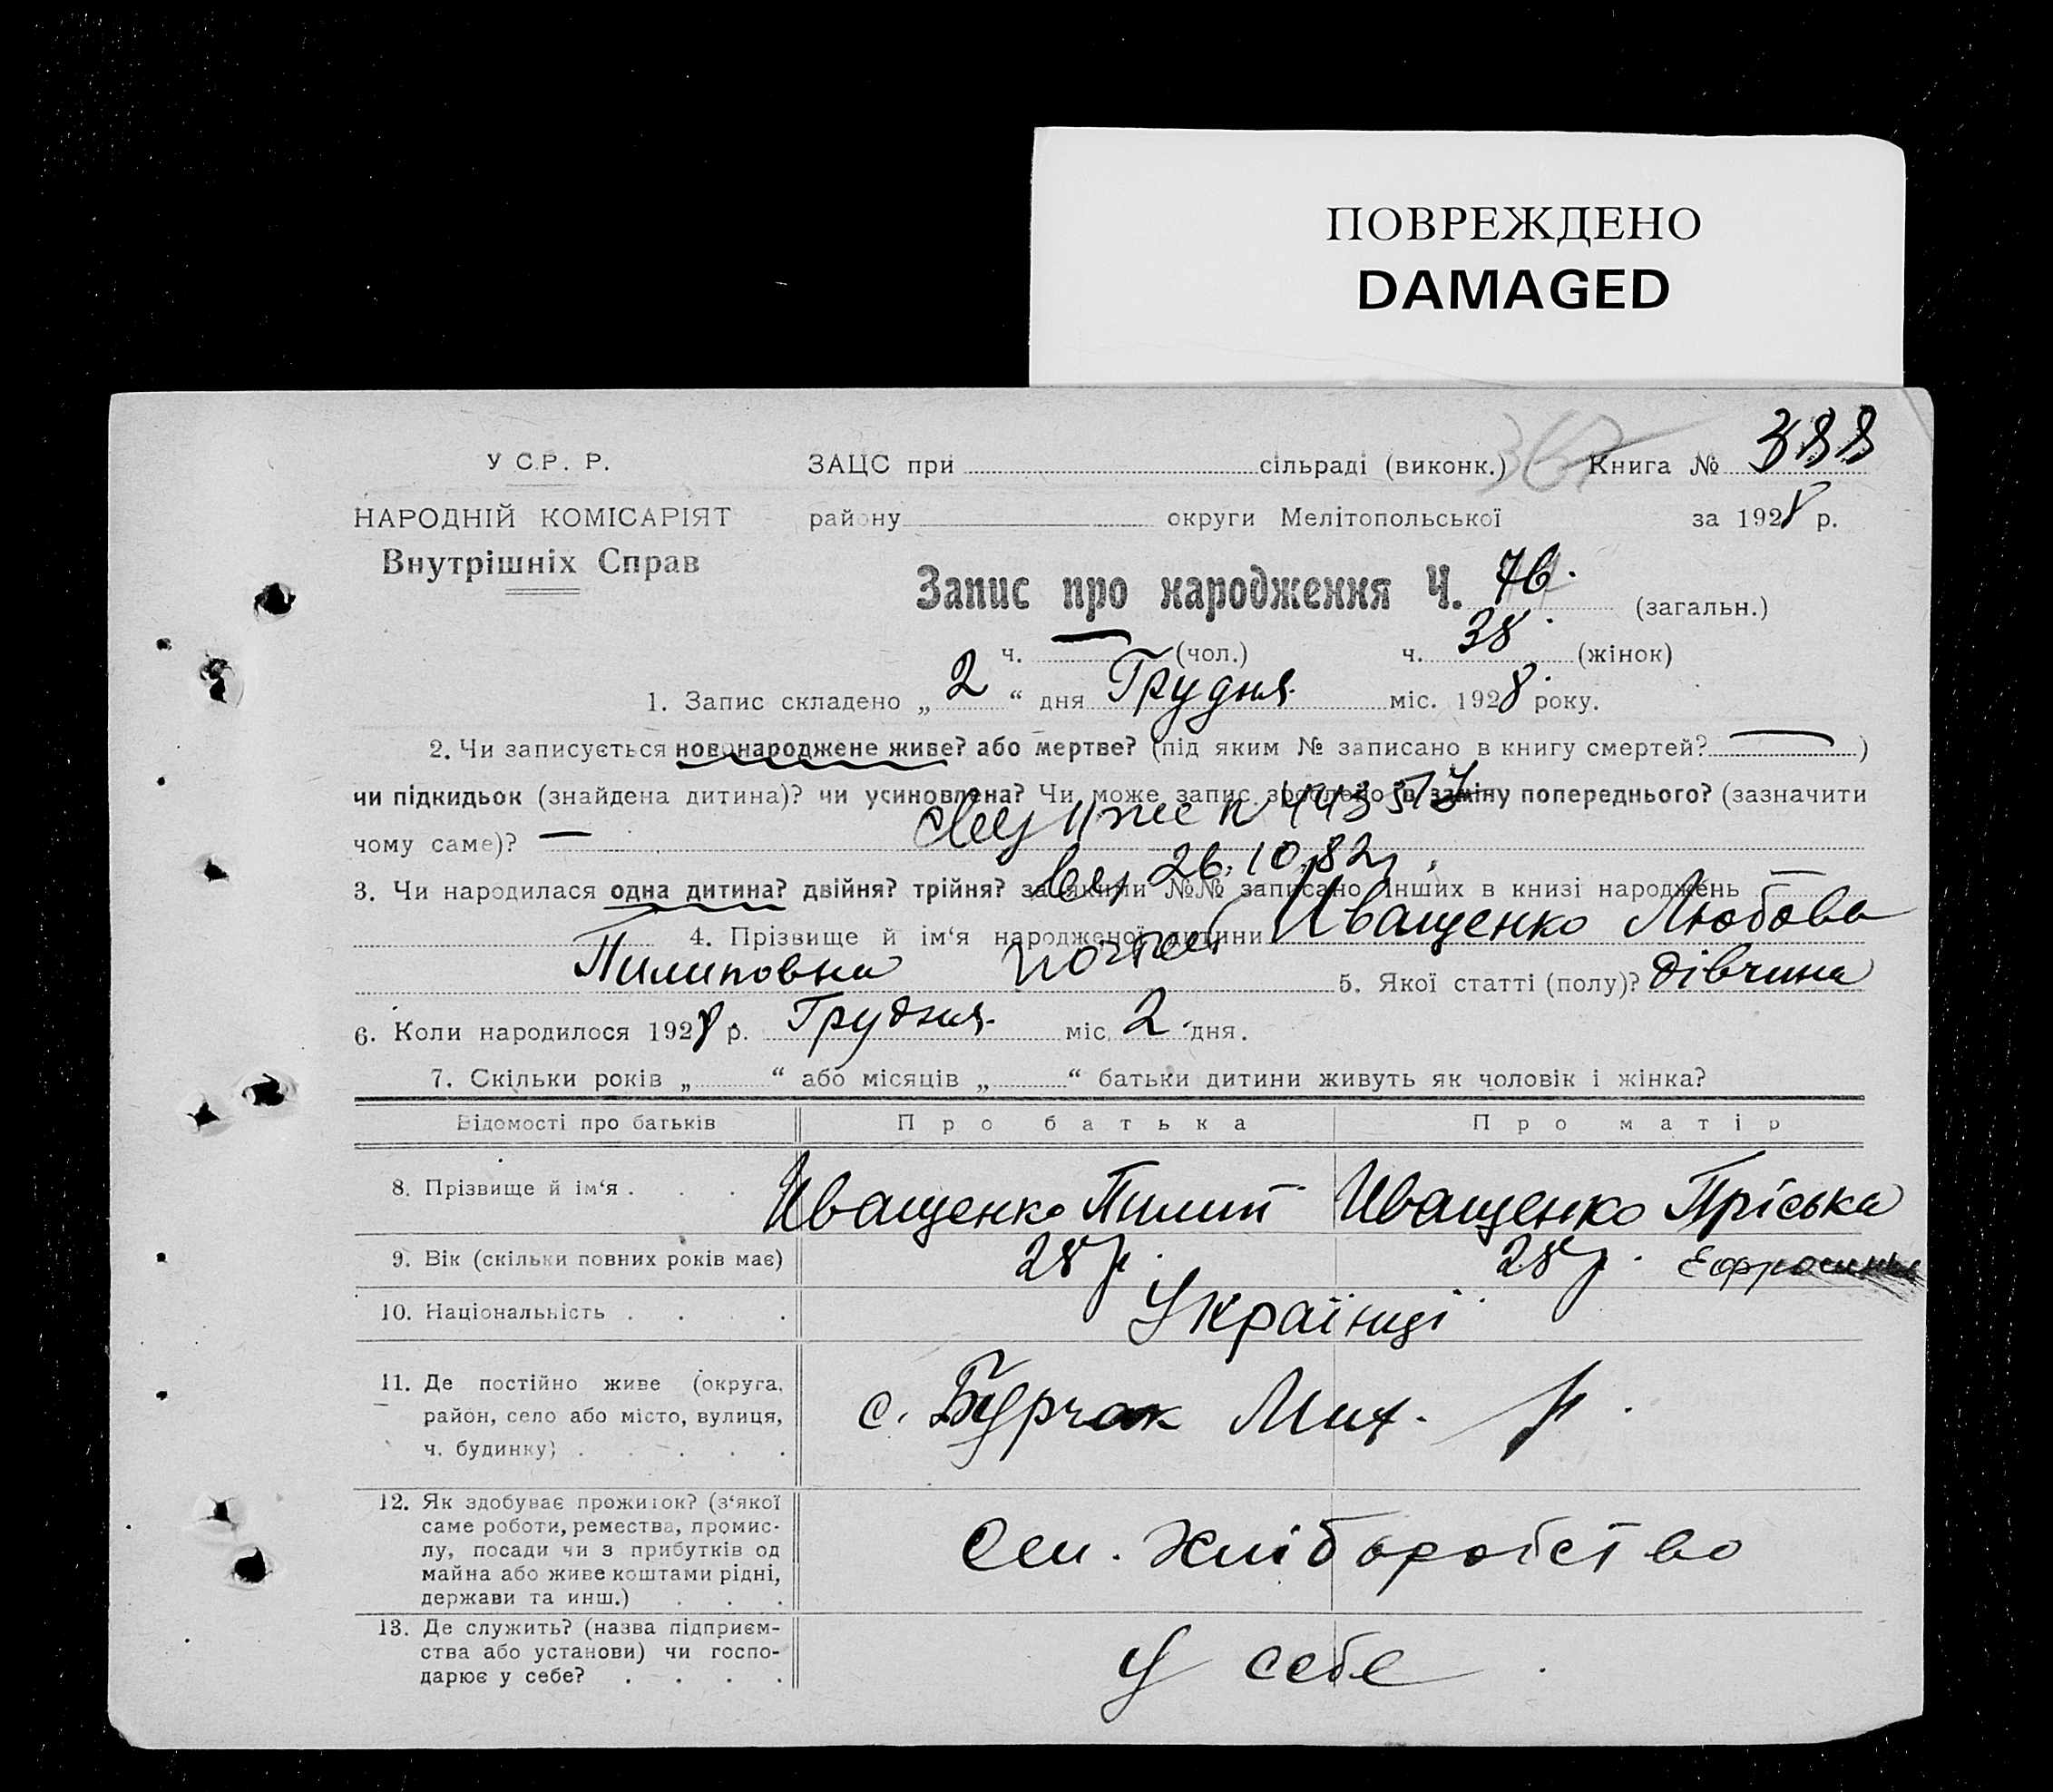 ПОВРЕЖДЕНО
DAMAGED
У С.Р. Р.
НАРОДНІЙ КОМІСАРІЯТ
Внутрішніх Справ
ЗАЦС при сільраді (виконк.) Книга № 388
району округи Мелітопольської за 1928 р.
Запис про народження Ч. 76. (загальн.)
ч. — (чол.) ч. 38. (жінок)
1. Запис складено „ 2 “ дня Грудня міс. 1928 року.
2. Чи записується новонароджене живе? або мертве? (під яким № записано в книгу смертей? — )
чи підкидьок (знайдена дитина)? чи усиновлена? Чи може запис зроблено в заміну попереднього? (зазначити
чому саме)? —
26.10.82
3. Чи народилася одна дитина? двійня? трійня? за якими №№ записано інших в книзі народжень —
4. Прізвище й ім‘я народженої дитини Иващенко Любовь
Пилиповна 5. Якої статті (полу)? дівчина
6. Коли народилося 1928 р. Грудня міс. 2 дня.
7. Скільки років „ “ або місяців „ “ батьки дитини живуть як чоловік і жінка?
Відомості про батьків Про батька Про матір
8. Прізвище й ім‘я . . . Иващенко Пилип Иващенко Пріська
9. Вік (скільки повних років має) 28 р. 28 р. Ефросинья
10. Національність . . . . Українці
11. Де постійно живе (округа,
район, село або місто, вулиця,
ч. будинку) . . . . .
с. Бурчак Мих. р.
12. Як здобуває прожиток? (з‘якої
саме роботи, ремества, промис-
лу, посади чи з прибутків од
майна або живе коштами рідні,
держави та инш.) . . .
Сел. Хліборобство
13. Де служить? (назва підприєм-
ства або установи) чи госпо-
дарює у себе? . . . .
У себе.